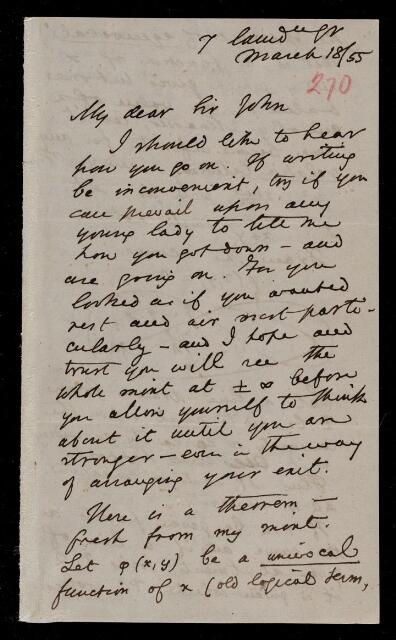 7 Camdn gr
March 18/55
270
My dear Sir John
I should like to hear
how you go on. If writing
be inconvenient, try if you
can prevail upon any
young lady to tell me
how you got down – and
are going on. For you
looked as if you wanted
rest and air most parti-
cularly – and I hope and
trust you will see the
whole mint at ± ∞ before
you allow yourself to think
about it until you are
stronger – even in the way
of arranging your exit.
Here is a theorem –
fresh from my mint.
Let φ(x,y) be a univocal
function of x (old logical term,